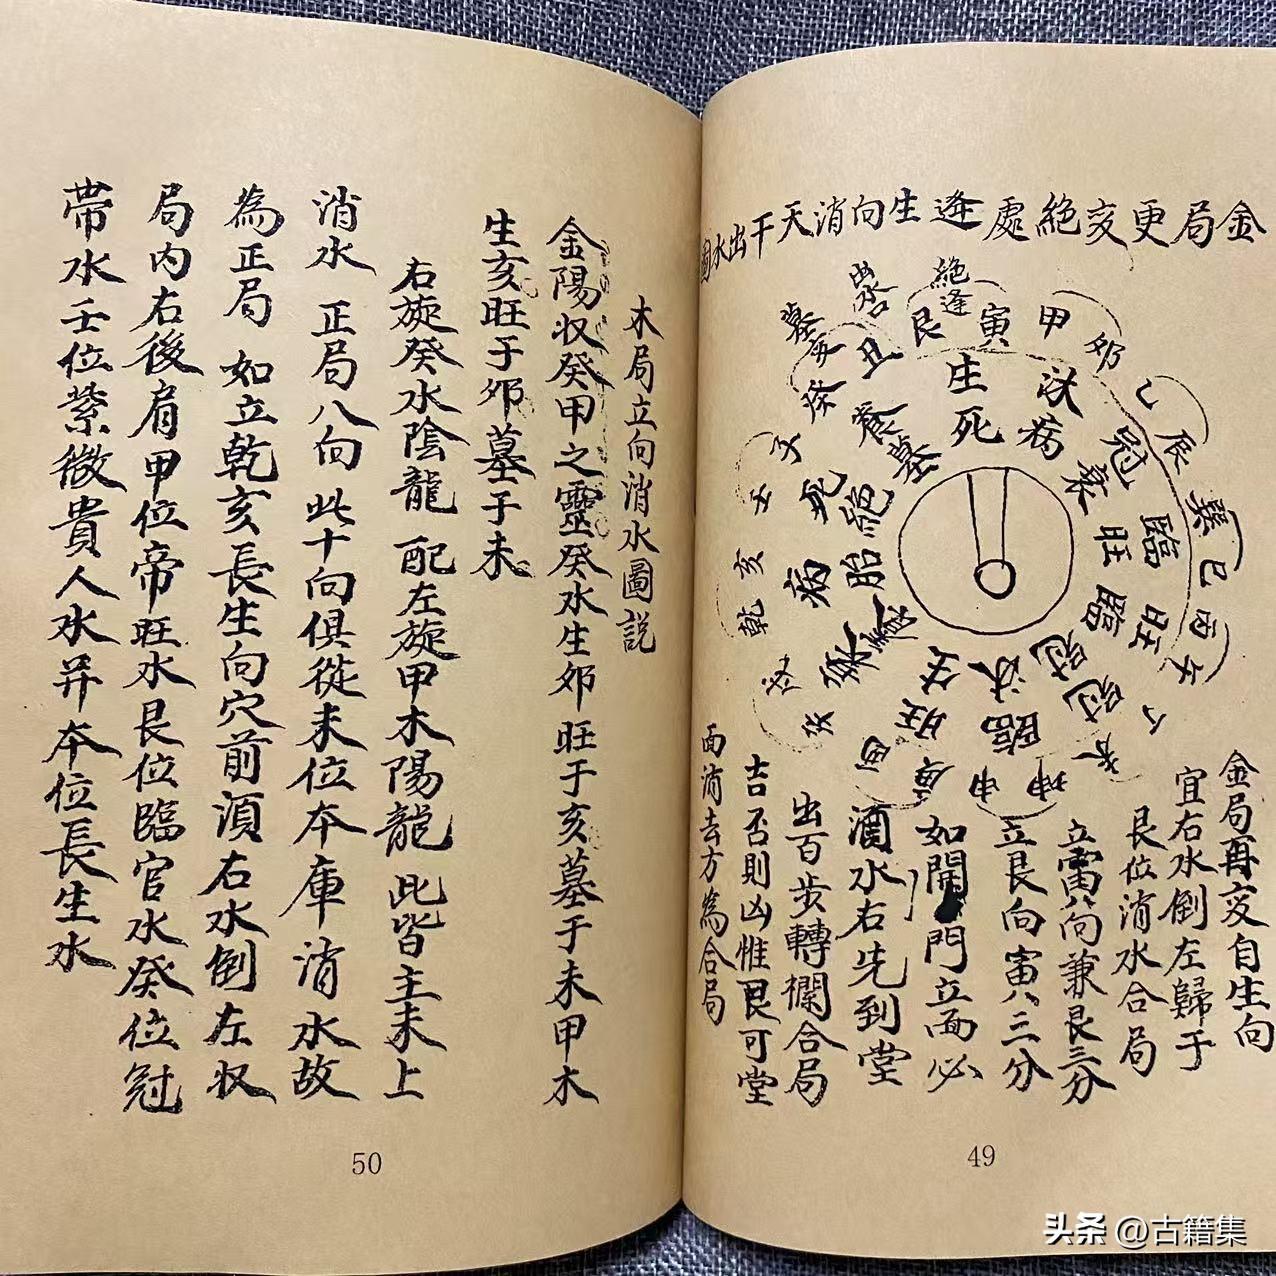 金局更变絶處逢生向消天干出水圖
絶逢
艮寅
甲卯
乙辰
巽巳
丙午
丁未
坤申
庚酉
辛戌
乾亥
壬子
癸丑
生沐冠臨旺衰病死墓絶胎養
死病衰旺臨冠沐生養胎絶墓
金局再变自生向
宜右水倒左歸于
艮位消水合局
立寅向兼艮三分
立艮向寅三分
如開門立面必
酒水右先到堂
出百步轉欄合局
吉否則凶惟艮可堂
面消去方為合局
49
木局立向消水圖説
金陽収癸甲之靈癸水生卯旺于亥墓于未甲木
生亥旺于卯墓于未
右旋癸水陰龍 配左旋甲木陽龍 此皆主未上
消水 正局八向 此十向俱從未位本庫消水故
為正局 如立乾亥長生向穴前須右水倒左収
局内右後肩甲位帝旺水艮位臨官水癸位冠
帶水壬位紫微貴人水并本位長生水
50
头条 @古籍集